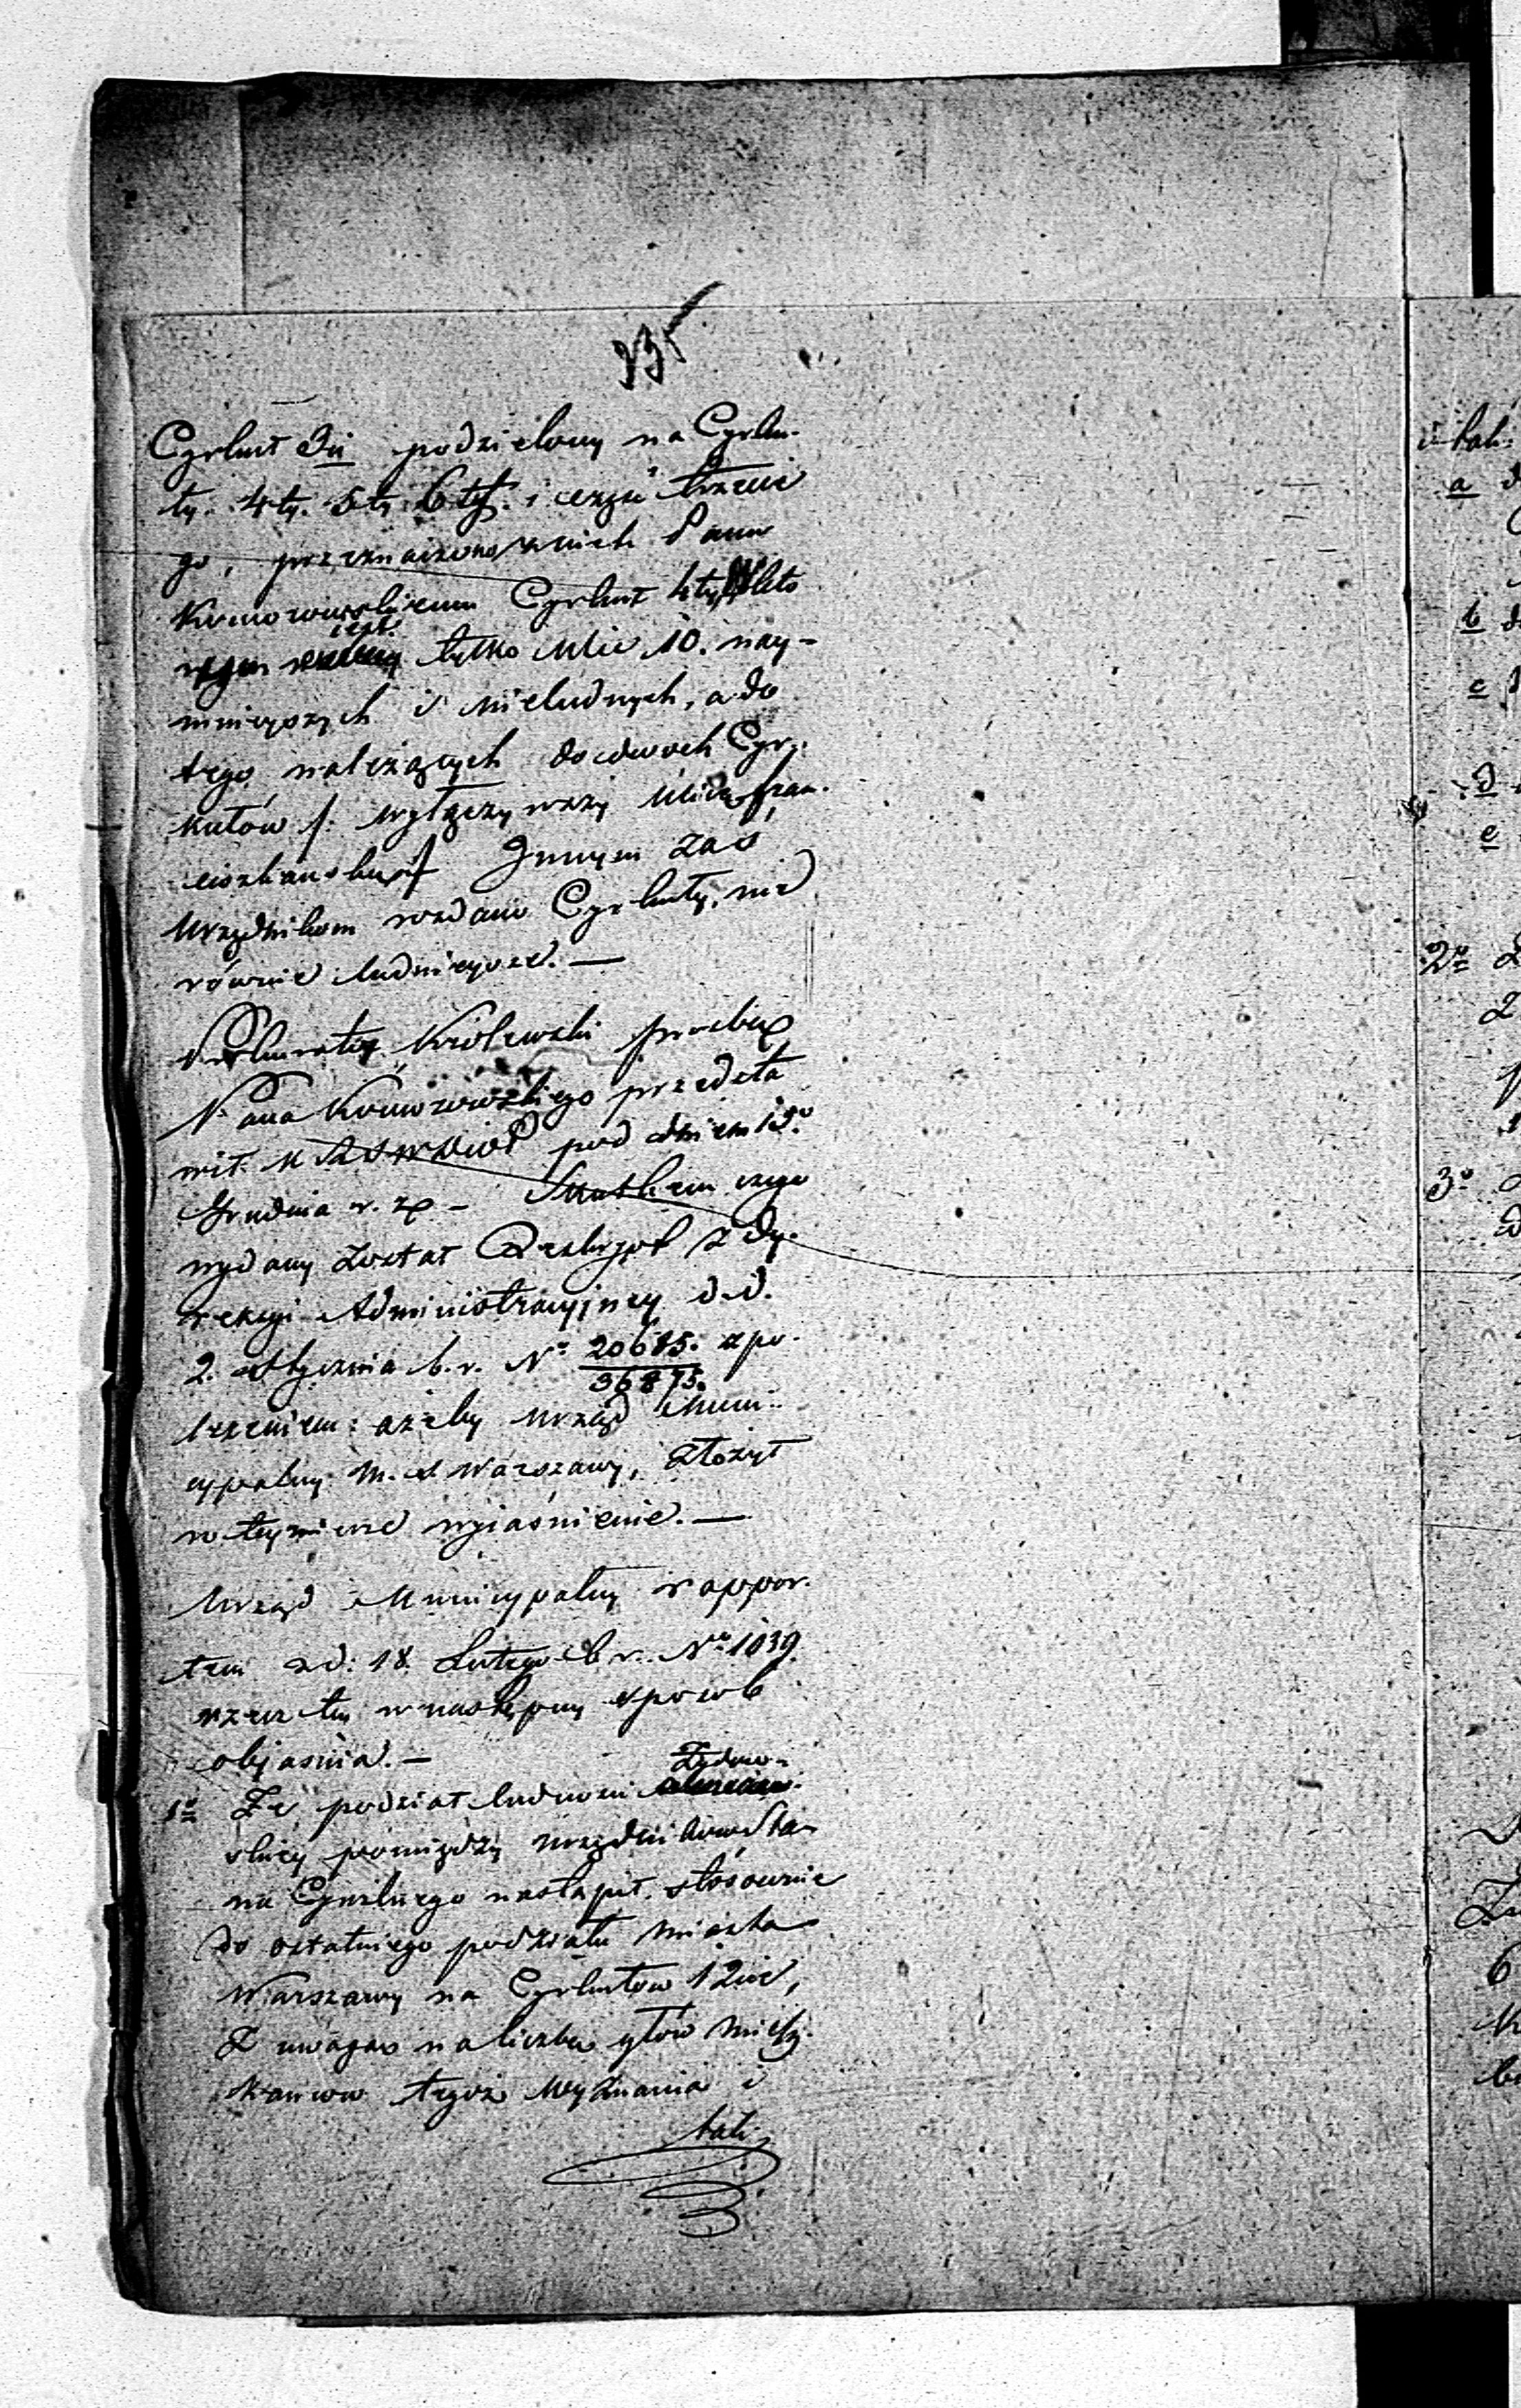 235
Cyrkuł 3ci podzielony na Cyrku-
ły. 4ty. 5ty 6ty. i część trzecie
go, przeznaczono z nich Panu
Komorowskiemu Cyrkuł 4ty,
jest tylko Ulic 10. nay-
mnieyszych i nieludnych, a do
tego należących do dwóch Cyr-
kułów /: wyłączywszy Ulicę Fran-
ciszkańską :/ Innym zaś
Urzędnikom oddano Cyrkuły, nie
równie ludnieysze. —
Prokurator Królewski prośbę
Pana Komorowskiego przedsta
wił pod dniem 15o
Grudnia r. z. – Skutkiem czego
wydany został Reskrypt z Dy-
rekcyi Administracyjney d. d.
2. Stycznia b. r. No 20685. z po-
36875.
leceniem: ażeby Urząd Muni-
cypalny M. S. Warszawy, złożył
w tey mierze wyiaśnienie. —
Urząd Municypalny rappor-
tem z d: 18. Lutego b. r. No 1039.
rzecz tę w następny sposób
objaśnia. —
1o Że podział ludności Żydow-
skiey pomiędzy Urzędników Sta-
nu Cywilnego nastąpił stosownie
do ostatniego podziału Miasta
Warszawy na Cyrkułów 12cie,
Z uwagą na liczbę głów Miesz-
kańców tegoż Wyznania i
tak:
i tak:
a
b
c
d
e
2o
3o